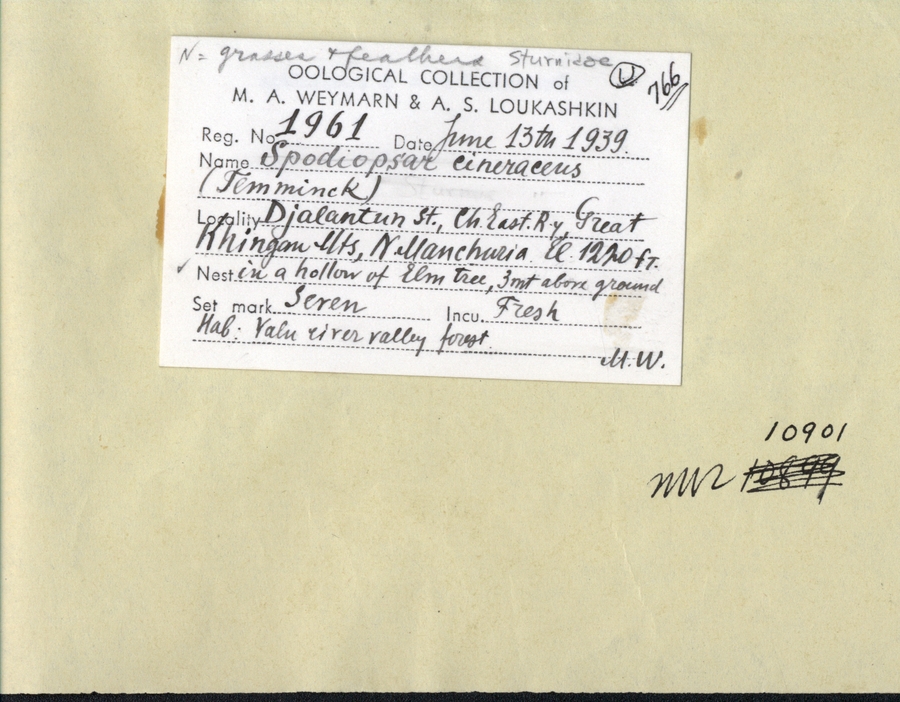 N = grasses & feathers Sturnidae
U
766
OOLOGICAL COLLECTION of
M. A. WEYMARN & A. S. LOUKASHKIN
Reg. No. 1961 Date June 13th 1939.
Name Spodiopsar cineraceus
(Temminck)
Locality Djalantun St., Ch. East. Ry, Great
Khingan Mts, N. Manchuria. El. 1220 ft.
Nest in a hollow of Elm tree, 3mt above ground
Set mark Seven Incu. Fresh
Hab: Yalu river valley forest.
M.W.
10901
10899